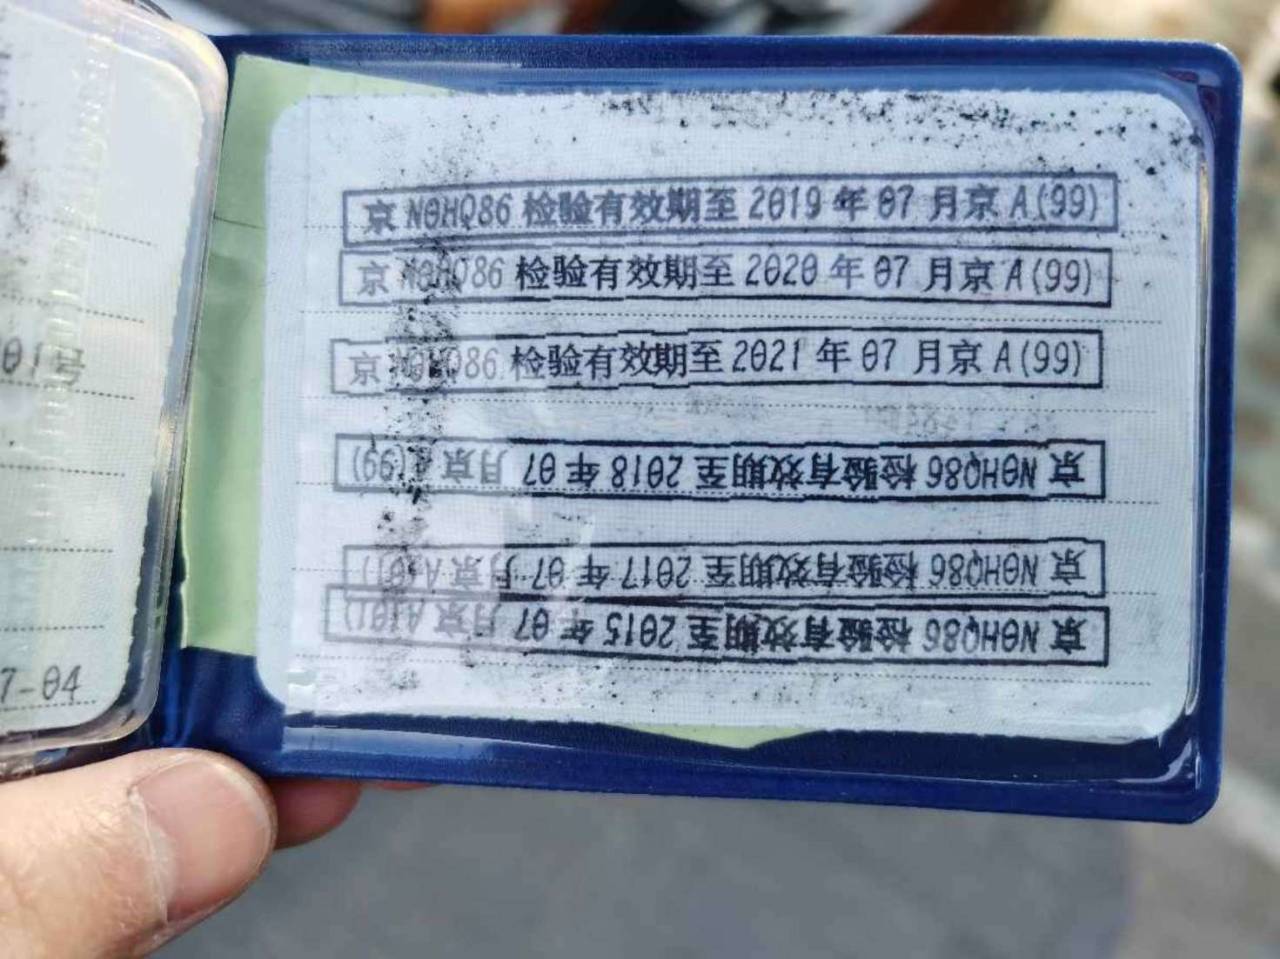 01号
7-04
京 N0HQ86 检验有效期至 2019 年 07 月京 A(99)
京 N0HQ86 检验有效期至 2020 年 07 月京 A(99)
京 N0HQ86 检验有效期至 2021 年 07 月京 A(99)
京 N0HQ86 检验有效期至 2018 年 07 月京 A(99)
京 N0HQ86 检验有效期至 2017 年 07 月京 A(01)
京 N0HQ86 检验有效期至 2015 年 07 月京 A(01)